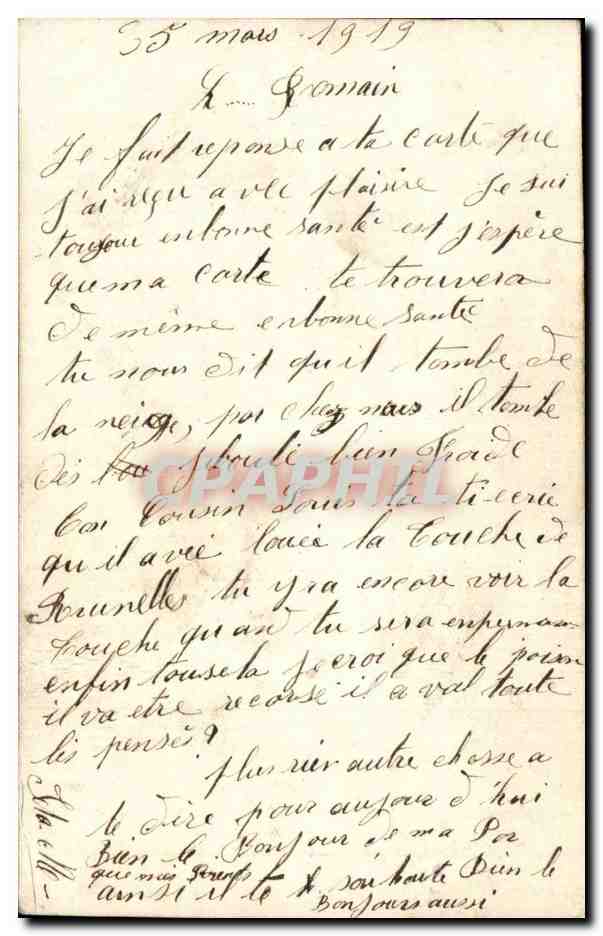 25 mars 1919
L..... Romain
Je fait reponse a ta carte que
j'ai reçu avec plaisire Je sui
toujour en bonne santé est j'espère
que ma carte te trouvera
de même en bonne santé
tu nous dit qu il tombe de
la neige, par chez nous il tombe
des jiboulé bien froide
ton Cousin Louis ta ti-cerie
qu il avée louée la Couche de
Brunelles tu yra encore voir la
couche quand tu sera en perman
enfin tousela je croi que le poison
il va etre recorsé il a val toute
les pensés?
plus rien autre chosse a
te dire pour aujour d'hui
Bien le Bonjour de ma Por
que mais Parents
ainsi il te souhaite Bien le
Bonjours aussi
CPAPHIL